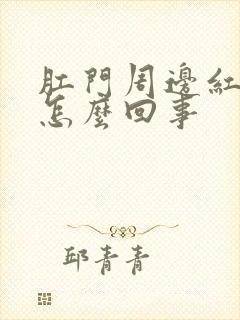 肛門周邊紅
怎麼回事
邱青青